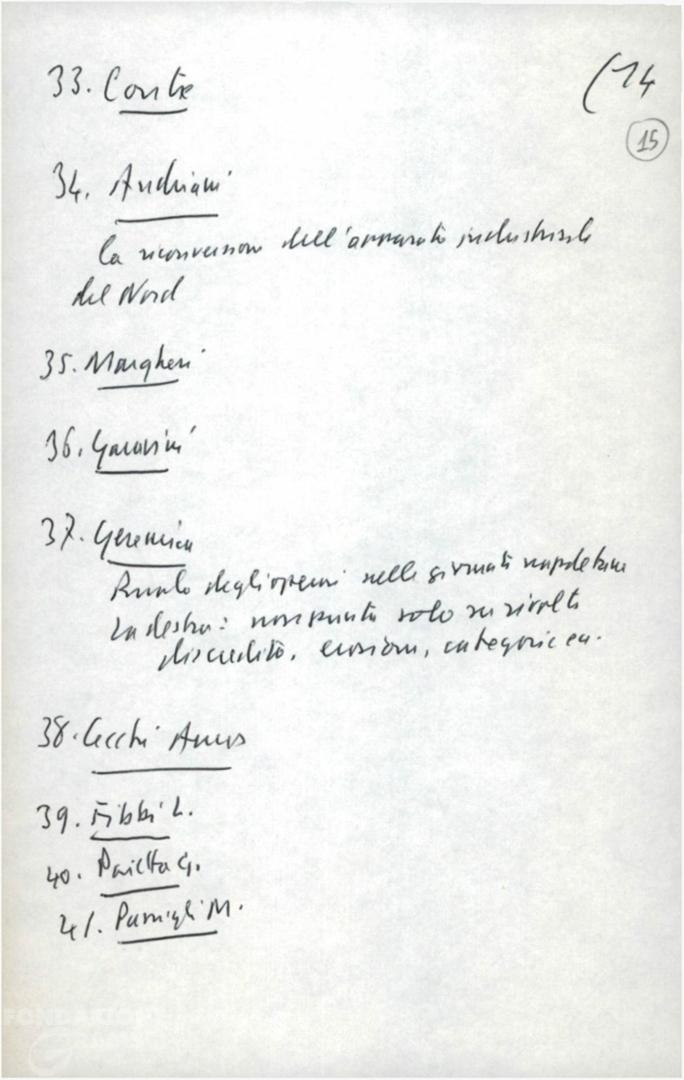 (14
15
33. Conte
34. Andriani
la riconversione dell'apparato industriale
del Nord
35. Margheri
36. Garavini
37. Geremicca
Ruolo degli operai nelle giornate napoletane
La destra: non punta solo su rivolte
discredito, evasione, categorie ecc.
38. Cecchi Amos
39. Fibbi L.
40. Pajetta G.
41. M.
FONDAZIONE